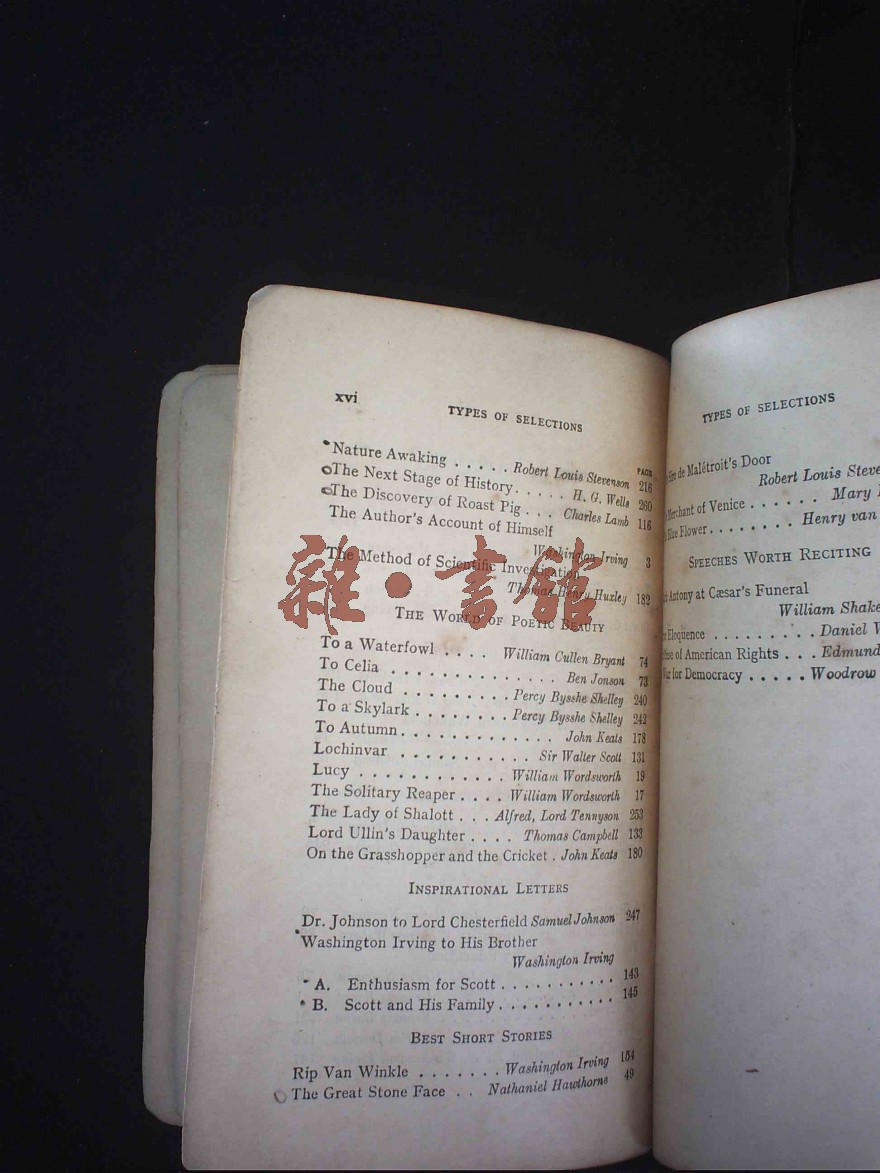 xvi
TYPES OF SELECTIONS
PAGE
Nature Awaking . . . . . Robert Louis Stevenson 216
The Next Stage of History . . . . . H. G. Wells 260
The Discovery of Roast Pig . . . Charles Lamb 116
The Author's Account of Himself
Washington Irving 3
The Method of Scientific Investigation
Thomas Henry Huxley 182
THE WORLD OF POETIC BEAUTY
To a Waterfowl . . . . William Cullen Bryant 74
To Celia . . . . . . . . . . . . . . Ben Jonson 73
The Cloud . . . . . . . . . Percy Bysshe Shelley 240
To a Skylark . . . . . . . . Percy Bysshe Shelley 242
To Autumn . . . . . . . . . . . . . John Keats 178
Lochinvar . . . . . . . . . . . Sir Walter Scott 131
Lucy . . . . . . . . . . . . William Wordsworth 19
The Solitary Reaper . . . . William Wordsworth 17
The Lady of Shalott . . . Alfred, Lord Tennyson 253
Lord Ullin's Daughter . . . . Thomas Campbell 133
On the Grasshopper and the Cricket . John Keats 180
INSPIRATIONAL LETTERS
Dr. Johnson to Lord Chesterfield Samuel Johnson 247
Washington Irving to His Brother
Washington Irving
A. Enthusiasm for Scott . . . . . . . . . . . 143
B. Scott and His Family . . . . . . . . . . . 145
BEST SHORT STORIES
Rip Van Winkle . . . . . . . Washington Irving 154
The Great Stone Face . . Nathaniel Hawthorne 49
雜·書館
TYPES OF SELECTIONS
de Malétroit's Door
Robert Louis
Merchant of Venice . . . . . . Mary
Flower . . . . . . . . Henry van
SPEECHES WORTH RECITING
Antony at Cæsar's Funeral
William
Eloquence . . . . . . . . . Daniel
of American Rights . . . Edmund
for Democracy . . . . . Woodrow